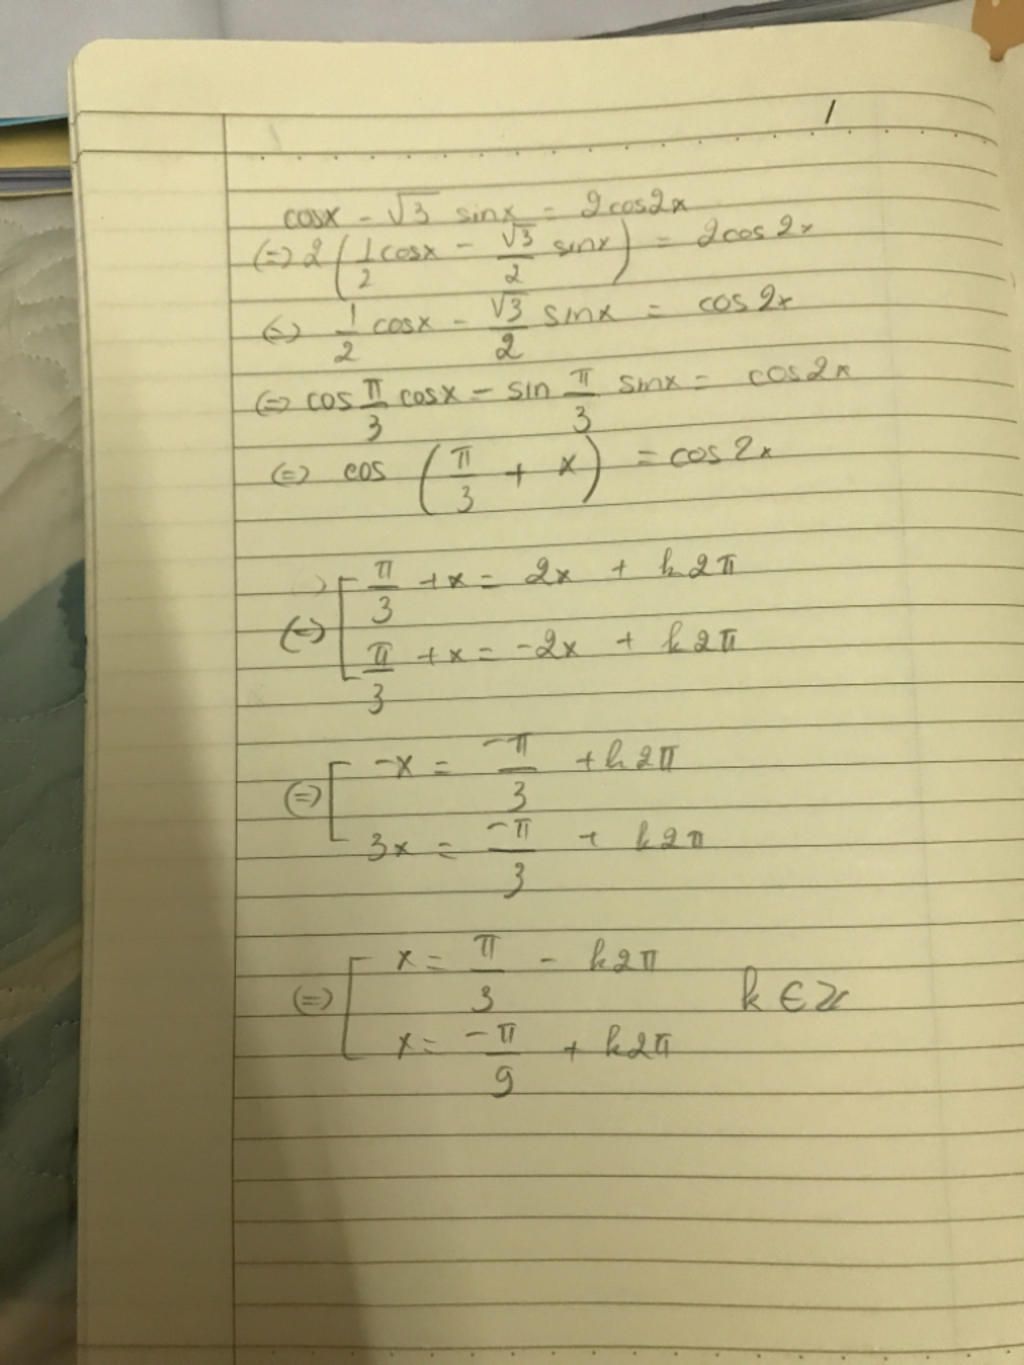 cosx - √3 sinx = 2cos2x
(=) 2 (1/2 cosx - √3/2 sinx) = 2cos2x
(=) 1/2 cosx - √3/2 sinx = cos2x
(=) cos π/3 cosx - sin π/3 sinx = cos2x
(=) cos (π/3 + x) = cos2x
(=) [ π/3 + x = 2x + k2π
π/3 + x = -2x + k2π
(=) [ -x = -π/3 + k2π
3x = -π/3 + k2π
(=) [ x = π/3 - k2π
x = -π/9 + k2π
k ∈ Z